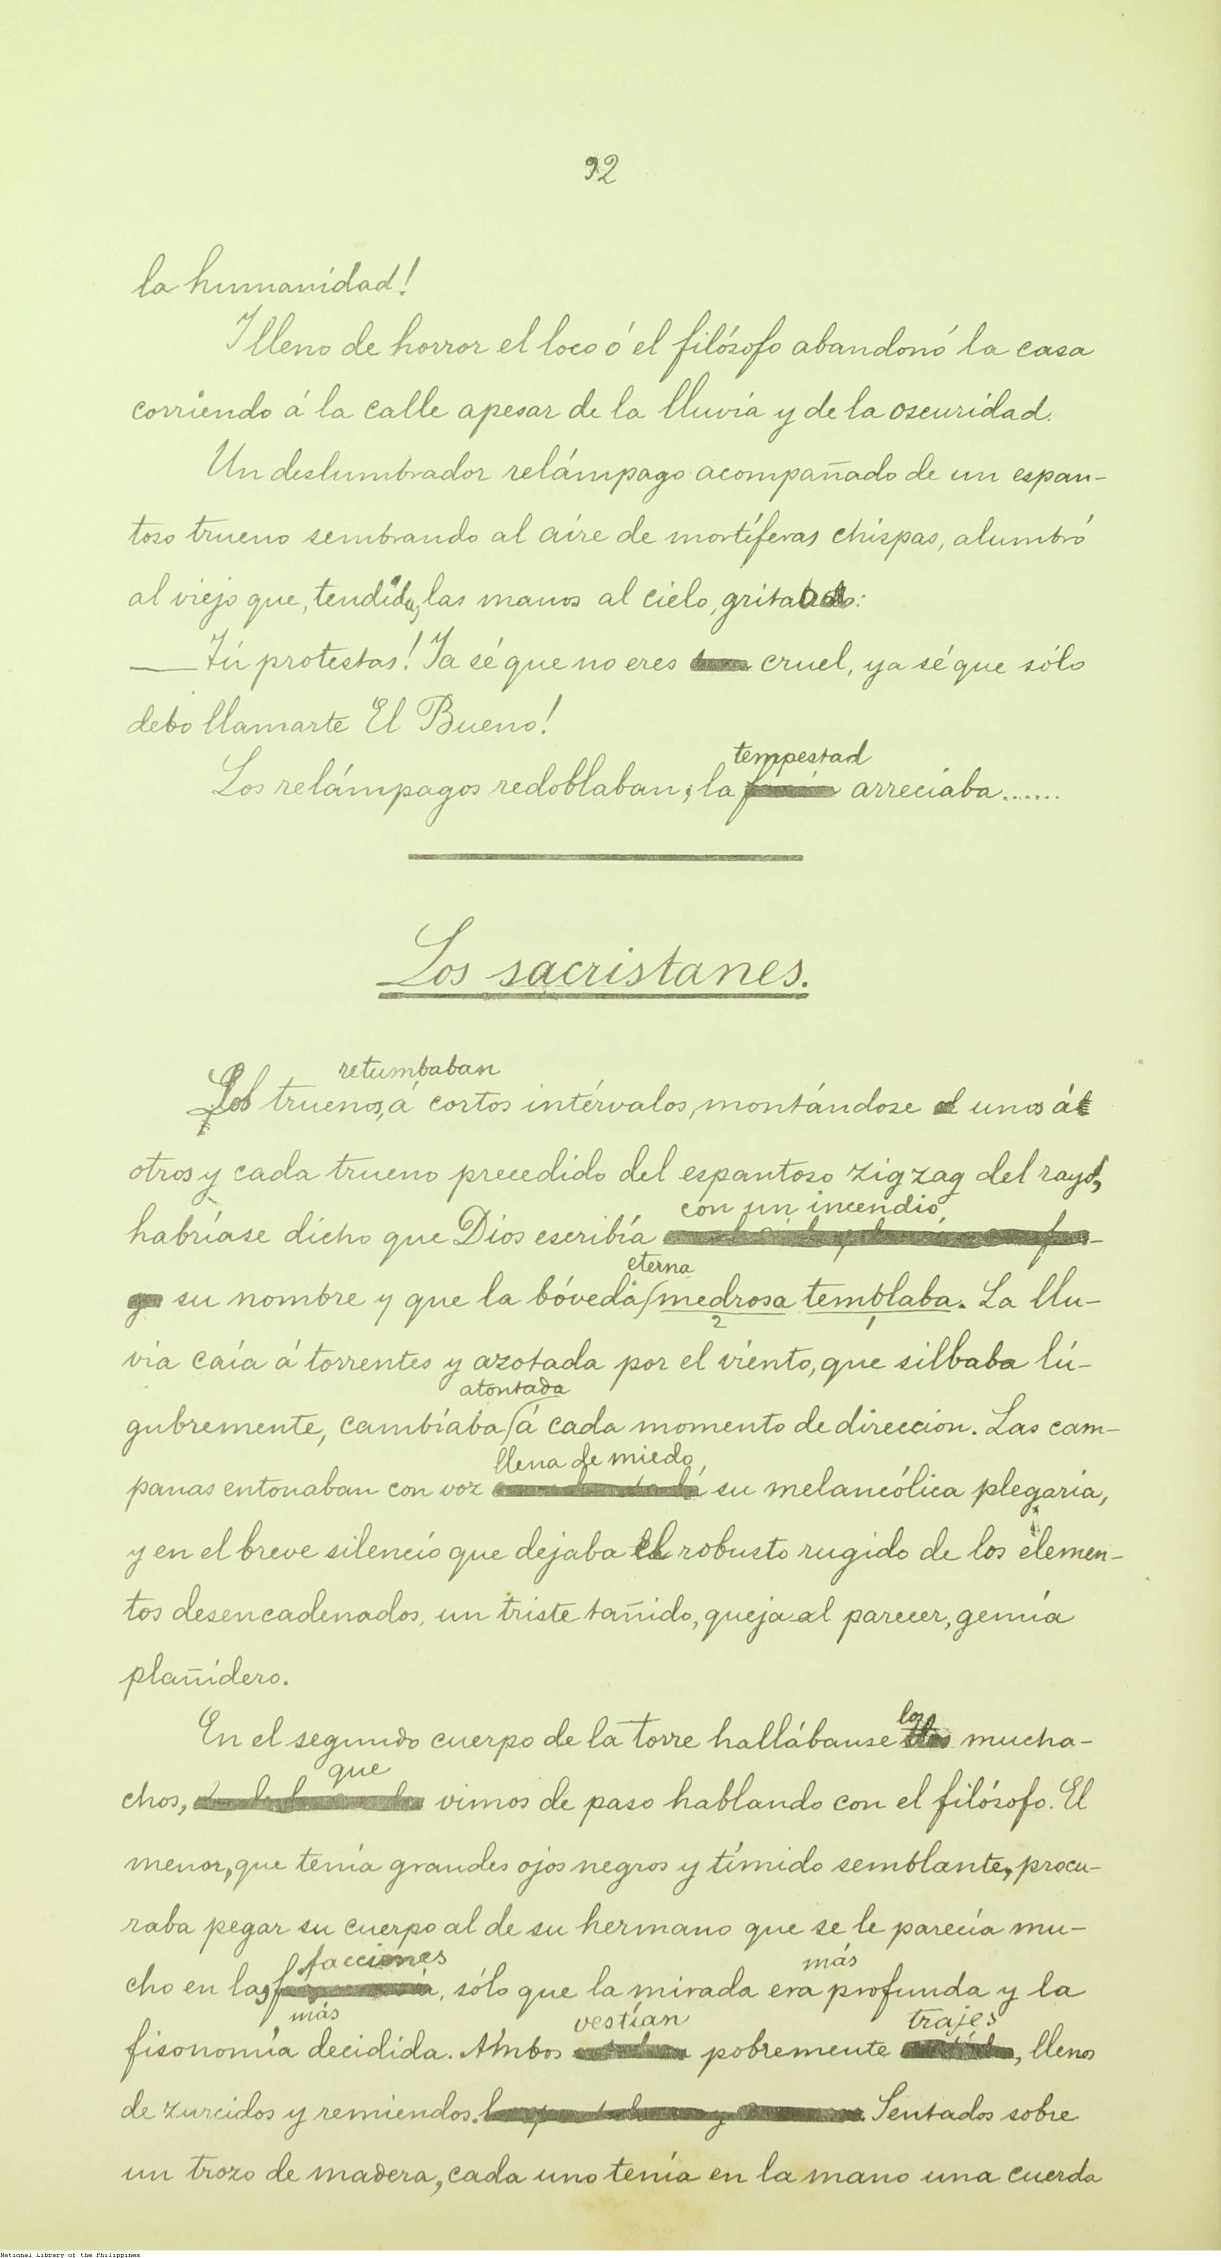 92
la humanidad!
Y lleno de horror el loco ó el filósofo abandonó la casa
corriendo á la calle apesar de la lluvia y de la oscuridad.
Un deslumbrador relámpago acompañado de un espan-
toso trueno sembrando al aire de mortíferas chispas, alumbró
al viejo que, tendidas las manos al cielo, gritaba:
—Tú protestas! Ya sé que no eres cruel, ya sé que sólo
debo llamarte El Bueno!
tempestad
Los relámpagos redoblaban; la arreciaba.......
Los sacristanes.
retumbaban
Los truenos, á cortos intérvalos, montándose unos á
otros y cada trueno precedido del espantoso zigzag del rayo,
con un incendio
habríase dicho que Dios escribía
eterna
su nombre y que la bóveda medrosa temblaba. La llu-
2 1
via caía á torrentes y azotada por el viento, que silbaba lú-
atontada
gubremente, cambiaba á cada momento de direccion. Las cam-
llena de miedo,
panas entonaban con voz su melancólica plegaria,
y en el breve silencio que dejaba el robusto rugido de los elemen-
tos desencadenados, un triste tañido, queja al parecer, gemía
plañidero.
los
En el segundo cuerpo de la torre hallábanse mucha-
que
chos, vimos de paso hablando con el filósofo. El
menor, que tenía grandes ojos negros y tímido semblante, procu-
raba pegar su cuerpo al de su hermano que se le parecía mu-
facciones más
cho en las, sólo que la mirada era profunda y la
más vestían trajes
fisonomía decidida. Ambos pobremente, llenos
de zurcidos y remiendos. Sentados sobre
un trozo de madera, cada uno tenía en la mano una cuerda
National Library of the Philippines